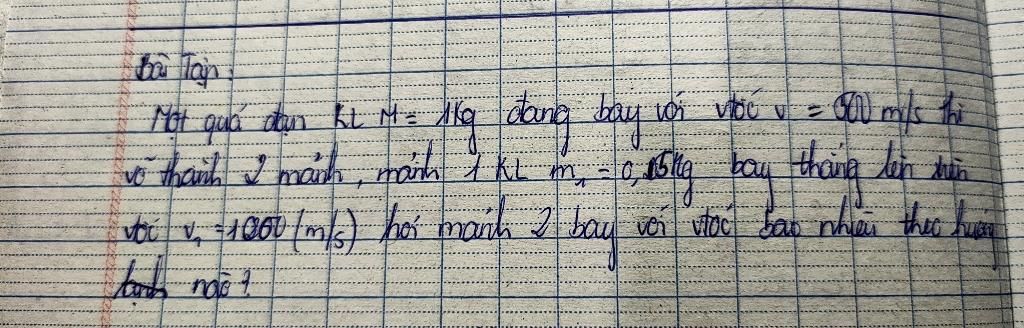 Bài Tập.
Một quả đạn KL M = 1kg đang bay với vtốc v = m/s thì
vỡ thành 2 mảnh, mảnh 1 KL m₁ = bay thẳng lên trên
vtốc v₁ = (m/s) hỏi mảnh 2 bay với vtốc bao nhiêu theo hướng
nào?